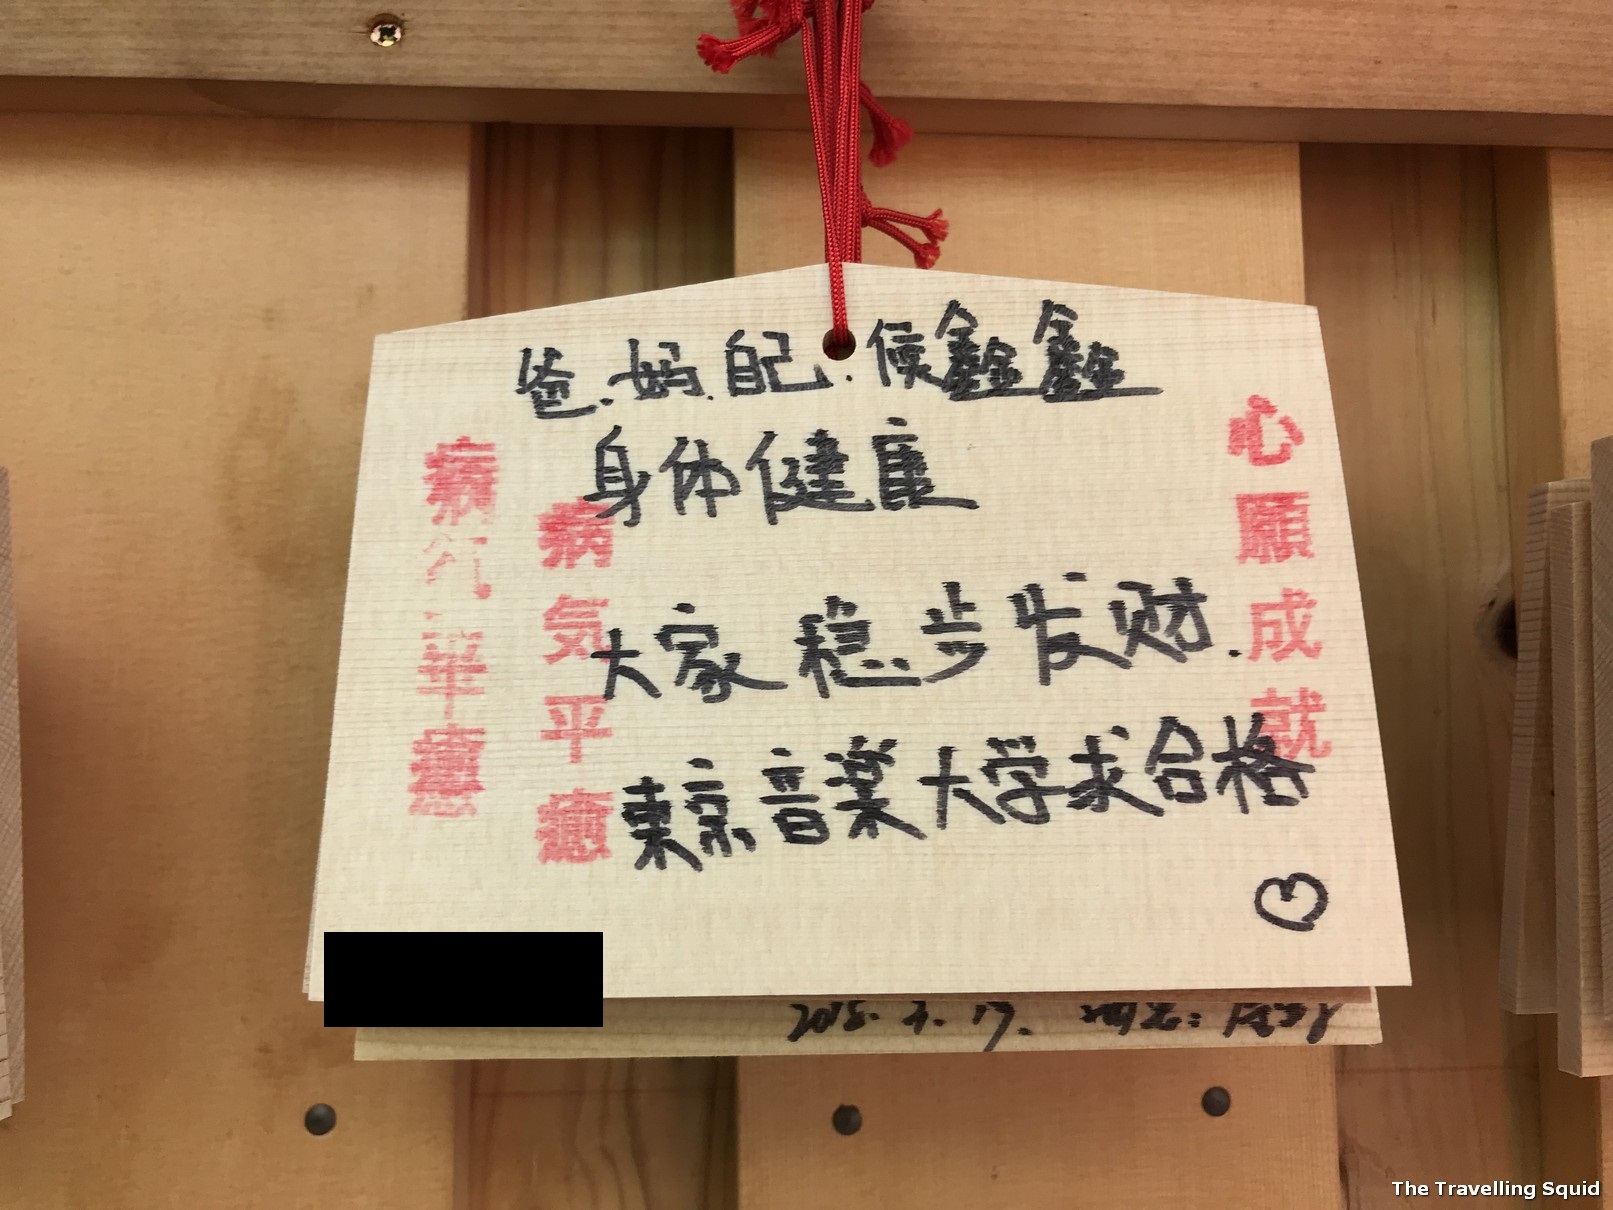 爸.妈.自己.侯鑫鑫
身体健康
大家稳步发财.
東京音楽大学求合格
心願成就
病気平癒
病気平癒
2018. 7. 17.
The Travelling Squid